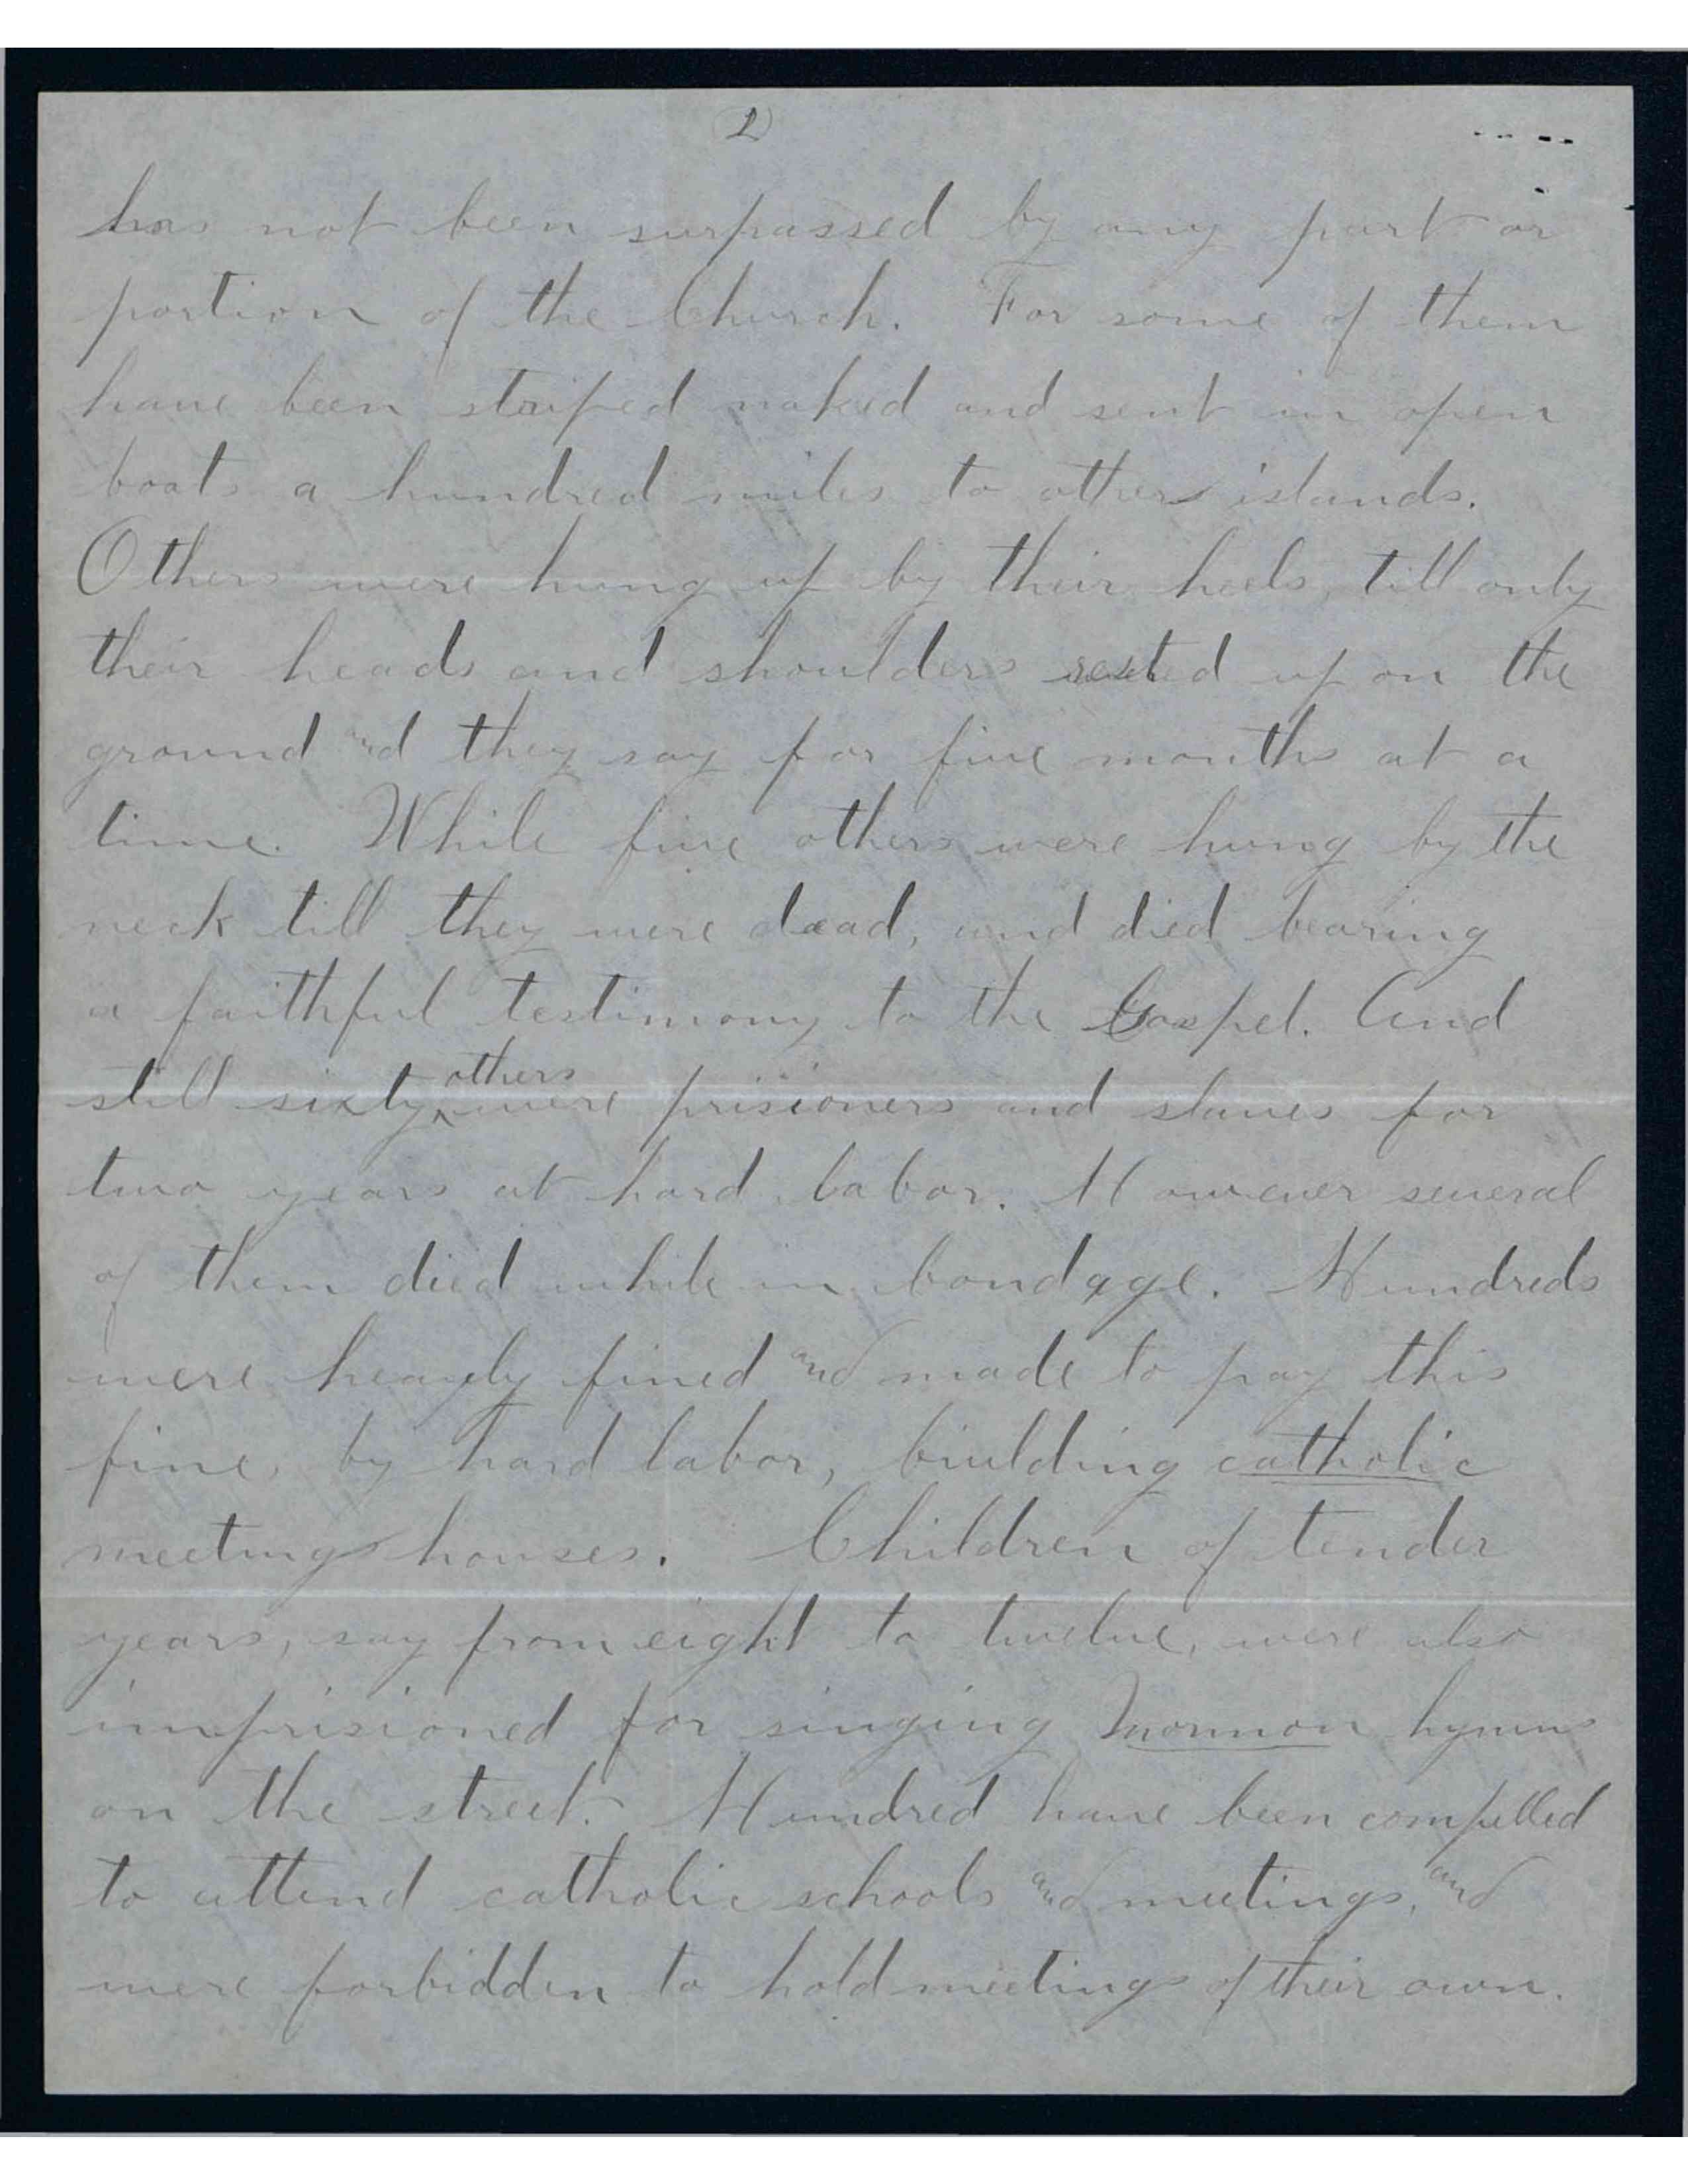 2
has not been surpassed by any part or
portion of the Church. For some of them
have been striped naked and sent in open
boats a hundred miles to others islands.
Others were hung up by their heels, till only
their heads and shoulders rested upon the
ground and they say for five months at a
time. While five others were hung by the
neck till they were dead, and died bearing
a faithful testimony to the Gospel. And
still sixty others were prisioners and slaves for
two years at hard labor. However several
of them died while in bondage. Hundreds
were heavyly fined and made to pay this
fine, by hard labor, biulding catholic
meeting houses. Children of tender
years, say from eight to twelve, were also
imprisioned for singing Mormon hymns
on the street. Hundred have been compelled
to attend catholic schools and meetings, and
were forbidden to hold meetings of their own.